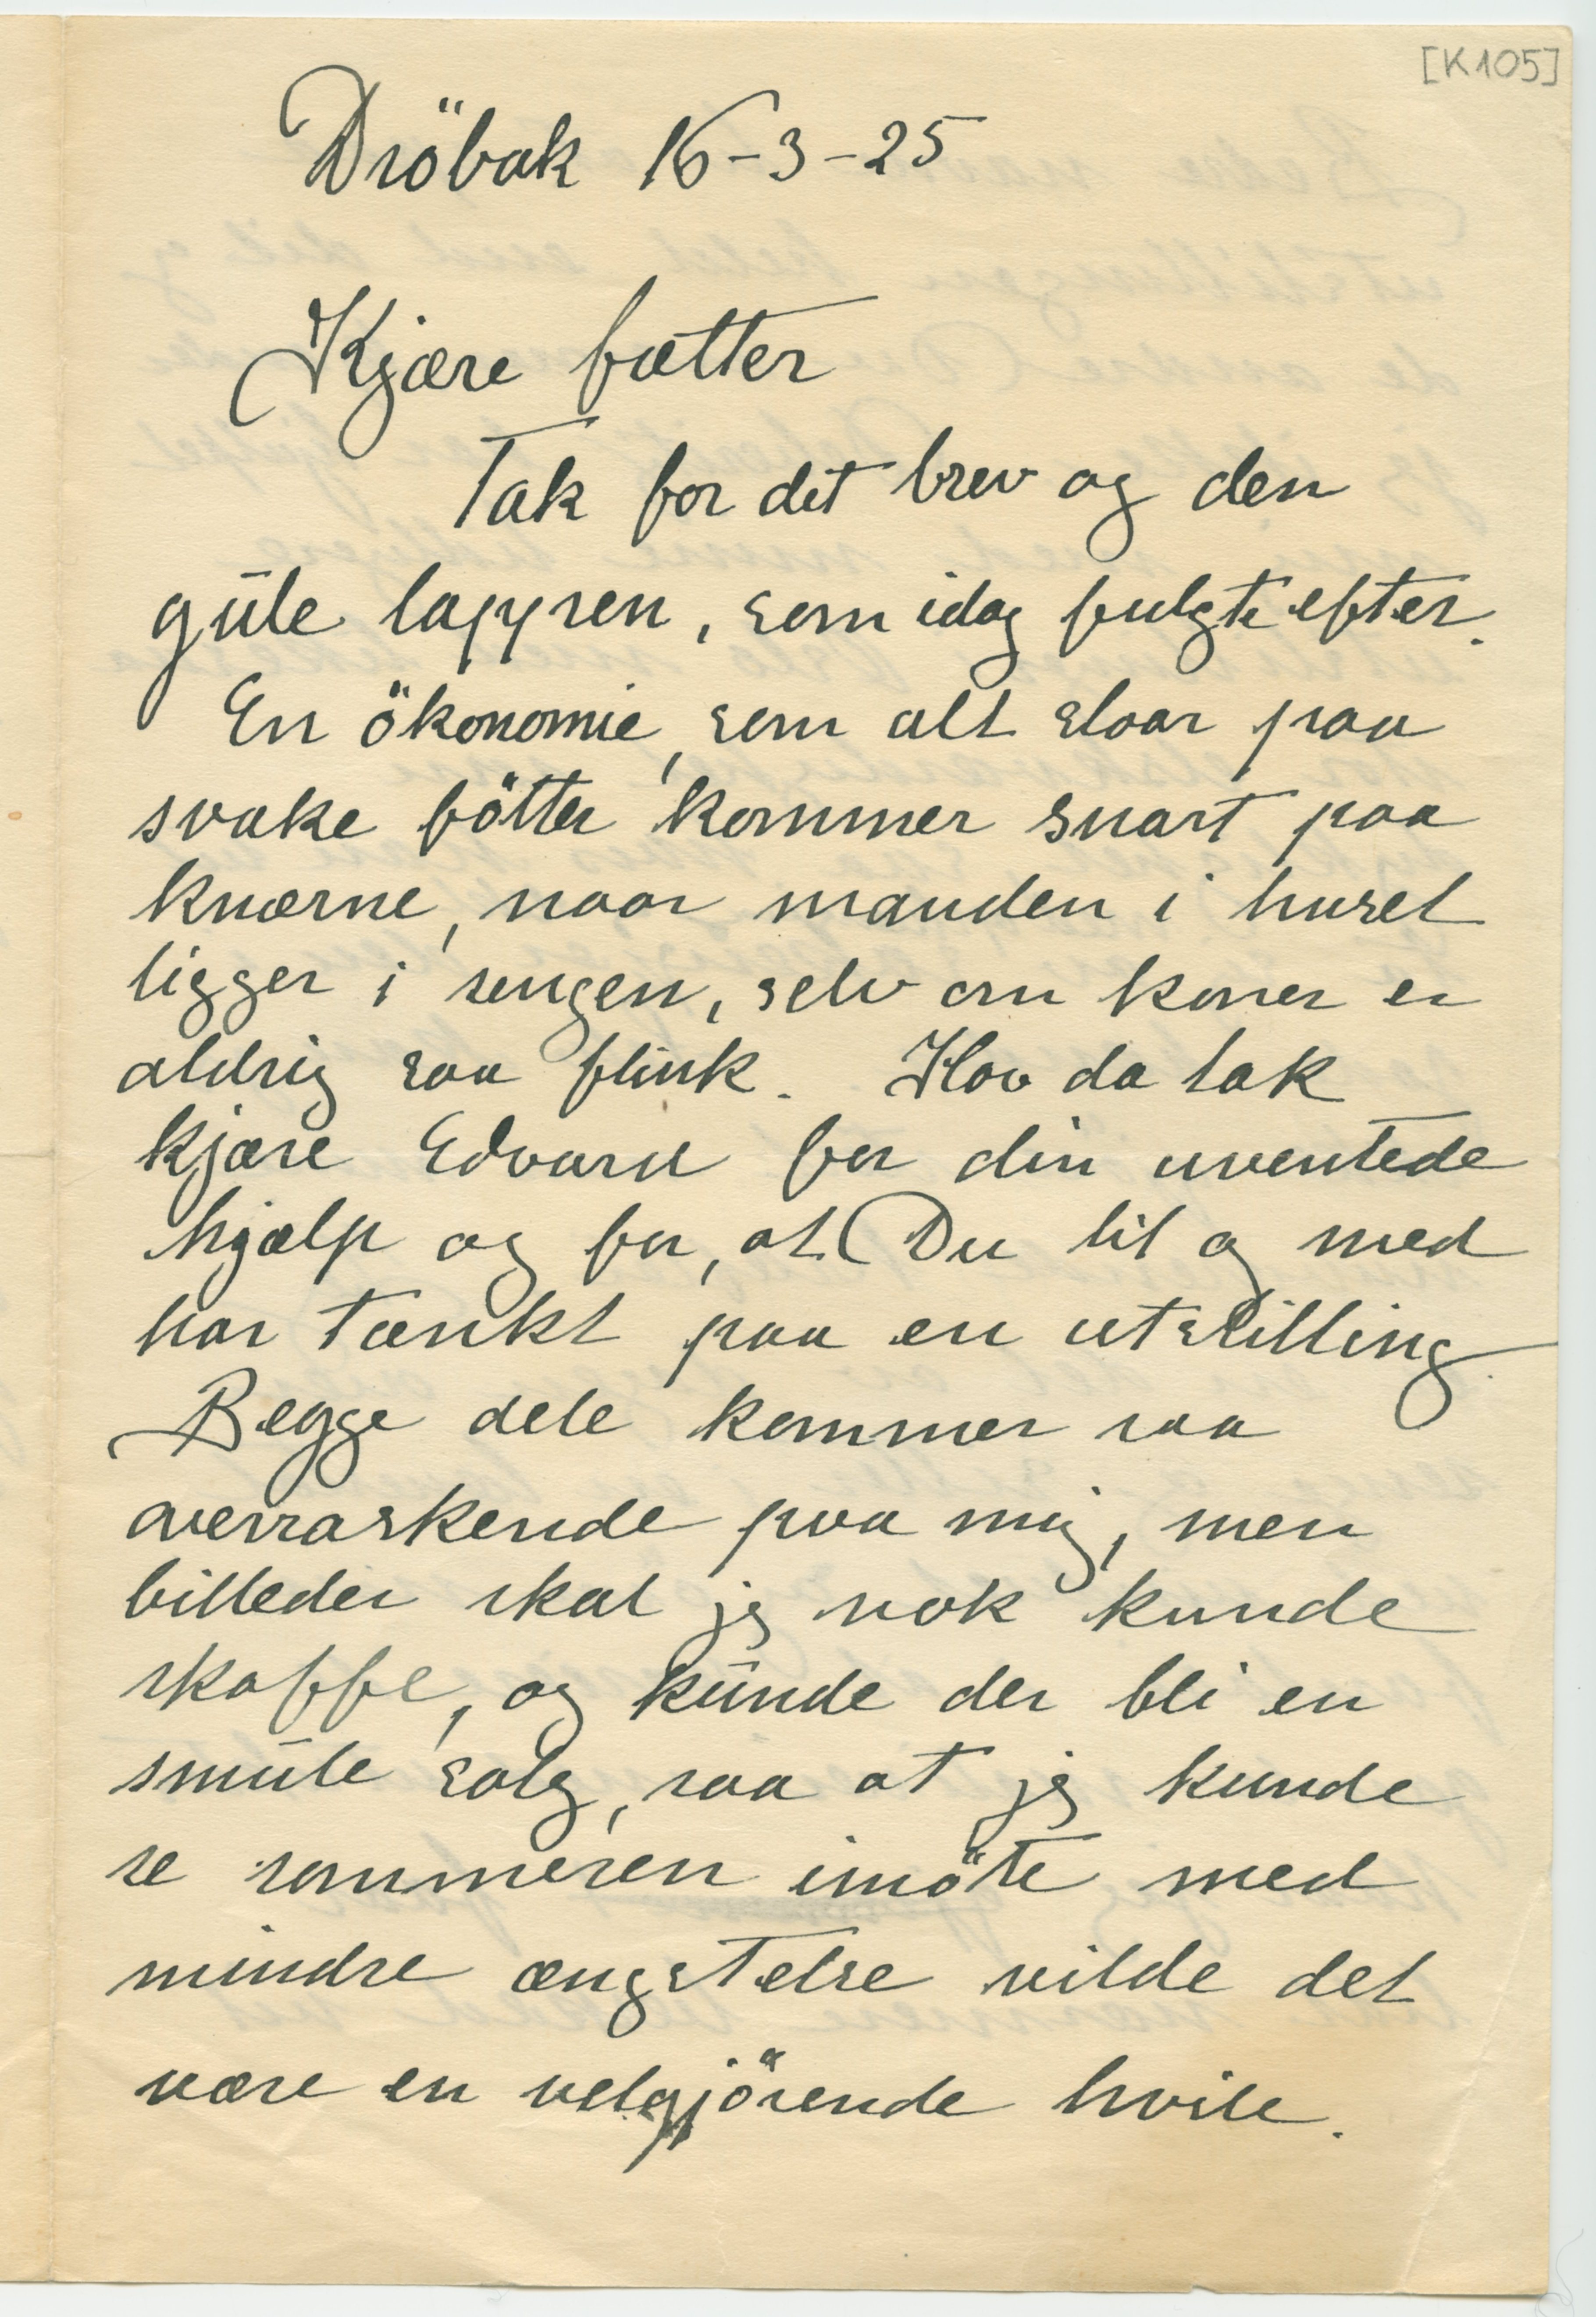 [K105]
Dröbak 16-3-25
Kjære fætter
Tak for dit brev og den
gule lappen, som idag fulgte efter.
En ökonomie, som alt staar paa
svake fötter kommer snart paa
knærne, naar manden i huset
ligger i sengen, selv om konen er
aldrig saa flink. Hav da tak
kjære Edvard for din uventede
hjælp og for, at Du til og med
har tænkt paa en utstilling.
Begge dele kommer saa
overraskende paa mig, men
billeder skal jeg nok kunde
skaffe, og kunde der bli en
smule salg, saa at jeg kunde
se sommeren imöte med
mindre ængstelse vilde det
være en velgjörende hvile.